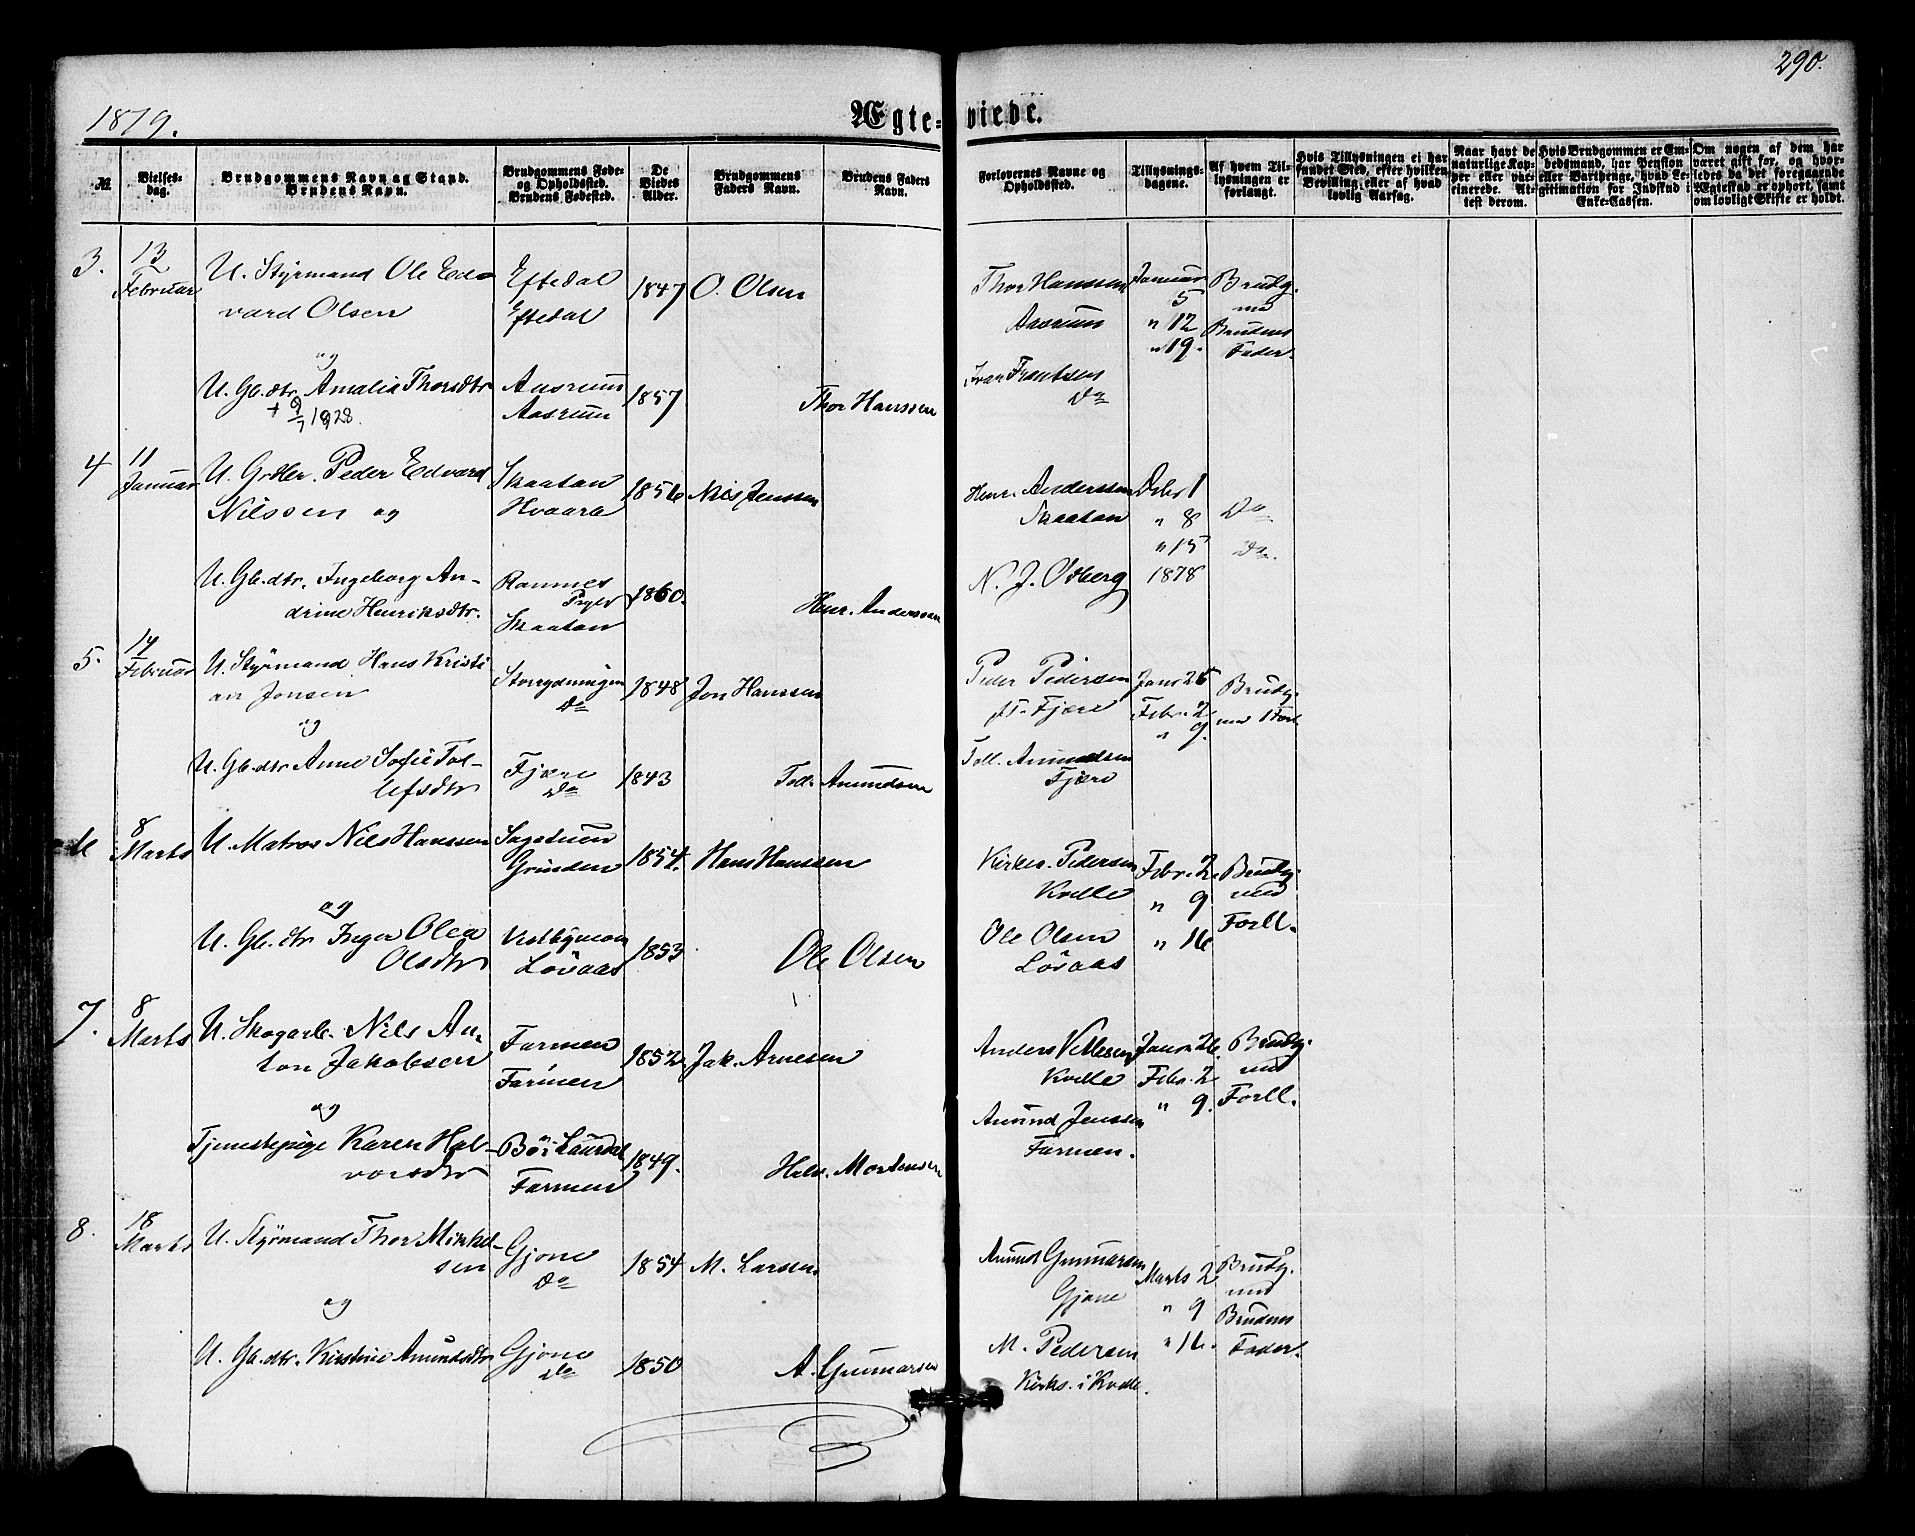 290.
1879.
Ægte- viede.
№
Vielses-
dag.
Brudgommens Navn og Stand.
Brudens Navn.
Brudgommens Føde-
og Opholdssted.
Brudens Fødested.
De
Viedes
Alder.
Brudgommens
Faders Navn.
Brudens Faders
Navn.
Forlovernes Navne og
Opholdssted.
Tillysnings-
dagene.
Af hvem Til-
lysningen er
forlangt.
Hvis Tillysningen ei har
fundet Sted, efter hvilken
Bevilling, eller af hvad
lovlig Aarsag.
Naar havt de
naturlige Kop-
per eller vac-
cinerede. At-
test derom.
Hvis Brudgommen er Em-
bedsmand, har Pension
eller Vartpenge, hvad Le-
gitimation for Indskud i
Enke-Cassen.
Om nogen af dem har
været gift før, og hvor-
ledes da det foregaaende
Ægteskab er ophørt, samt
om lovligt Skifte er holdt.
3.
13
Februar
U. Styrmand Ole Ed-
vard Olsen
og
U. Gb.dtr. Amalia Thorsdtr
+ 9/7 1928.
Eftedal
Eftedal
Aasrum
Aasrum
1847
1857
O. Olsen
Thor Hanssen
Thor Hanssen
Aasrum
Ivar Frantsen
Do
Januar
5
" 12
" 19.
Brudg.
med
Brudens
Fader.
4
11
Januar
U. Grdbr. Peder Edvard
Nilssen og
U. Gb.dtr. Ingeborg An-
drine Henriksdtr.
Skaatan
Hvaara
Ramnes
Prgld
Skaatan
1856
1860.
Nils Jenssen
Henr. Anderssen
Henr. Anderssen
Skaatan
N. J. Odberg
Debr 1
" 8
" 15
1878
Do
Do.
5.
14
Februar
U. Styrmand Hans Kristi
an Jonsen
og
U. Gb.dtr Anne Sofie Tol-
lefsdtr
Storrydningen
Do
Fjære
Do
1848
1843
Jon Hanssen
Toll. Amundsen
Peder Pedersen
Fjære
Toll. Amundsen
Fjære
Janr 26
Febr. 2
" 9.
Brudg.
med Forl
6
8
Marts
U. Matros Nils Hanssen
og
U. Gb.dtr Inger Olea
Olsdtr
Sagatuun
Grinden
Løvaas
1854.
1853
Hans Hanssen
Ole Olsen
Kirkes. Pedersen
Kvelle
Ole Olsen
Løvaas
Febr. 2.
" 9
" 16
Brudg.
med
Forll.
7.
8
Marts
U. Skogarb. Nils An-
ton Jakobsen
og
Tjenestepige Karen Hal-
vorsdtr
Farmen
Farmen
Bø i Laurdal
Farmen
1852
1849.
Jak. Arnesen
Halv. Mortensen
Anders Vettesen
Kvelle
Amund Jenssen
Farmen.
Janr 26.
Febr. 2
" 9.
Brudg.
med
Forll.
8.
18
Marts
U. Styrmand Thor Mikkel-
sen
og
U. Gb.dtr. Kirstine Amundsdtr
Gjone
Do
Gjone
Do
1854
1850
M. Larsen
A. Gunnarsen
Amund Gunnarsen
Gjone
M. Pedersen
Kirks. i Kvelle.
Marts 2
" 9
" 16.
Brudg.
med
Brudens
Fader.